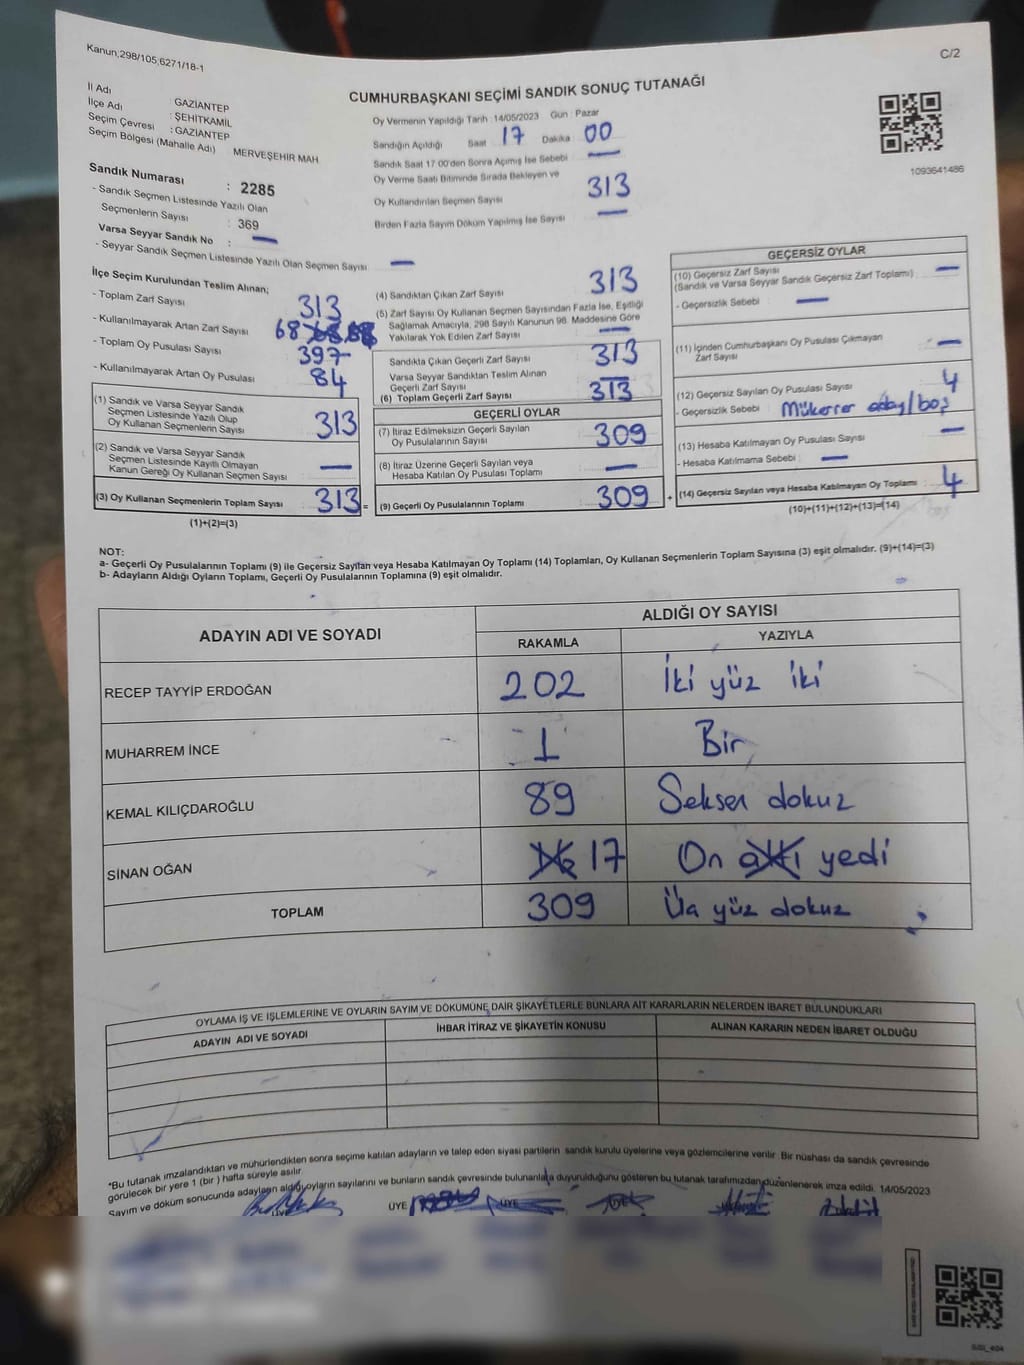 Kanun;298/105,6271/18-1
C/2
CUMHURBAŞKANI SEÇİMİ SANDIK SONUÇ TUTANAĞI
İl Adı : GAZİANTEP
İlçe Adı : ŞEHİTKAMİL
Seçim Çevresi : GAZİANTEP
Seçim Bölgesi (Mahalle Adı) MERVEŞEHİR MAH
Sandık Numarası : 2285
- Sandık Seçmen Listesinde Yazılı Olan
Seçmenlerin Sayısı : 369
Varsa Seyyar Sandık No : —
- Seyyar Sandık Seçmen Listesinde Yazılı Olan Seçmen Sayısı —
Oy Vermenin Yapıldığı Tarih :14/05/2023 Gün : Pazar
Sandığın Açıldığı Saat 17 Dakika 00
Sandık Saat 17:00'den Sonra Açımış İse Sebebi —
Oy Verme Saati Bitiminde Sırada Bekleyen ve
Oy Kullandırılan Seçmen Sayısı 313
Birden Fazla Sayım Döküm Yapılmış İse Sayısı —
1093641486
İlçe Seçim Kurulundan Teslim Alınan;
- Toplam Zarf Sayısı 313
- Kullanılmayarak Artan Zarf Sayısı 68
- Toplam Oy Pusulası Sayısı 397
- Kullanılmayarak Artan Oy Pusulası 84
(1) Sandık ve Varsa Seyyar Sandık
Seçmen Listesinde Yazılı Olup
Oy Kullanan Seçmenlerin Sayısı 313
(2) Sandık ve Varsa Seyyar Sandık
Seçmen Listesinde Kayıtlı Olmayan
Kanun Gereği Oy Kullanan Seçmen Sayısı —
(3) Oy Kullanan Seçmenlerin Toplam Sayısı 313 =
(1)+(2)=(3)
(4) Sandıktan Çıkan Zarf Sayısı 313
(5) Zarf Sayısı Oy Kullanan Seçmen Sayısından Fazla İse, Eşitliği
Sağlamak Amacıyla, 298 Sayılı Kanunun 98. Maddesine Göre
Yakılarak Yok Edilen Zarf Sayısı —
Sandıkta Çıkan Geçerli Zarf Sayısı 313
Varsa Seyyar Sandıktan Teslim Alınan
Geçerli Zarf Sayısı —
(6) Toplam Geçerli Zarf Sayısı 313
GEÇERLİ OYLAR
(7) İtiraz Edilmeksizin Geçerli Sayılan
Oy Pusulalarının Sayısı 309
(8) İtiraz Üzerine Geçerli Sayılan veya
Hesaba Katılan Oy Pusulası Toplamı —
(9) Geçerli Oy Pusulalarının Toplamı 309 +
GEÇERSİZ OYLAR
(10) Geçersiz Zarf Sayısı —
(Sandık ve Varsa Seyyar Sandık Geçersiz Zarf Toplamı)
- Geçersizlik Sebebi —
(11) İçinden Cumhurbaşkanı Oy Pusulası Çıkmayan
Zarf Sayısı —
(12) Geçersiz Sayılan Oy Pusulası Sayısı 4
- Geçersizlik Sebebi Mükerrer aday/boş
(13) Hesaba Katılmayan Oy Pusulası Sayısı —
- Hesaba Katılmama Sebebi : —
(14) Geçersiz Sayılan veya Hesaba Katılmayan Oy Toplamı 4
(10)+(11)+(12)+(13)=(14)
NOT:
a- Geçerli Oy Pusulalarının Toplamı (9) ile Geçersiz Sayılan veya Hesaba Katılmayan Oy Toplamı (14) Toplamları, Oy Kullanan Seçmenlerin Toplam Sayısına (3) eşit olmalıdır. (9)+(14)=(3)
b- Adayların Aldığı Oyların Toplamı, Geçerli Oy Pusulalarının Toplamına (9) eşit olmalıdır.
ADAYIN ADI VE SOYADI
ALDIĞI OY SAYISI
RAKAMLA YAZIYLA
RECEP TAYYİP ERDOĞAN 202 İki yüz iki
MUHARREM İNCE 1 Bir
KEMAL KILIÇDAROĞLU 89 Seksen dokuz
SİNAN OĞAN 16 17 On altı yedi
TOPLAM 309 Üç yüz dokuz
OYLAMA İŞ VE İŞLEMLERİNE VE OYLARIN SAYIM VE DÖKÜMÜNE DAİR ŞİKAYETLERLE BUNLARA AİT KARARLARIN NELERDEN İBARET BULUNDUKLARI
ADAYIN ADI VE SOYADI İHBAR İTİRAZ VE ŞİKAYETİN KONUSU ALINAN KARARIN NEDEN İBARET OLDUĞU
*Bu tutanak imzalandıktan ve mühürlendikten sonra seçime katılan adayların ve talep eden siyasi partilerin sandık kurulu üyelerine veya gözlemcilerine verilir. Bir nüshası da sandık çevresinde
görülecek bir yere 1 (bir ) hafta süreyle asılır.
Sayım ve döküm sonucunda adayların aldığı oyların sayılarını ve bunların sandık çevresinde bulunanlara duyurulduğunu gösteren bu tutanak tarafımızdan düzenlenerek imza edildi. 14/05/2023
ÜYE ÜYE ÜYE